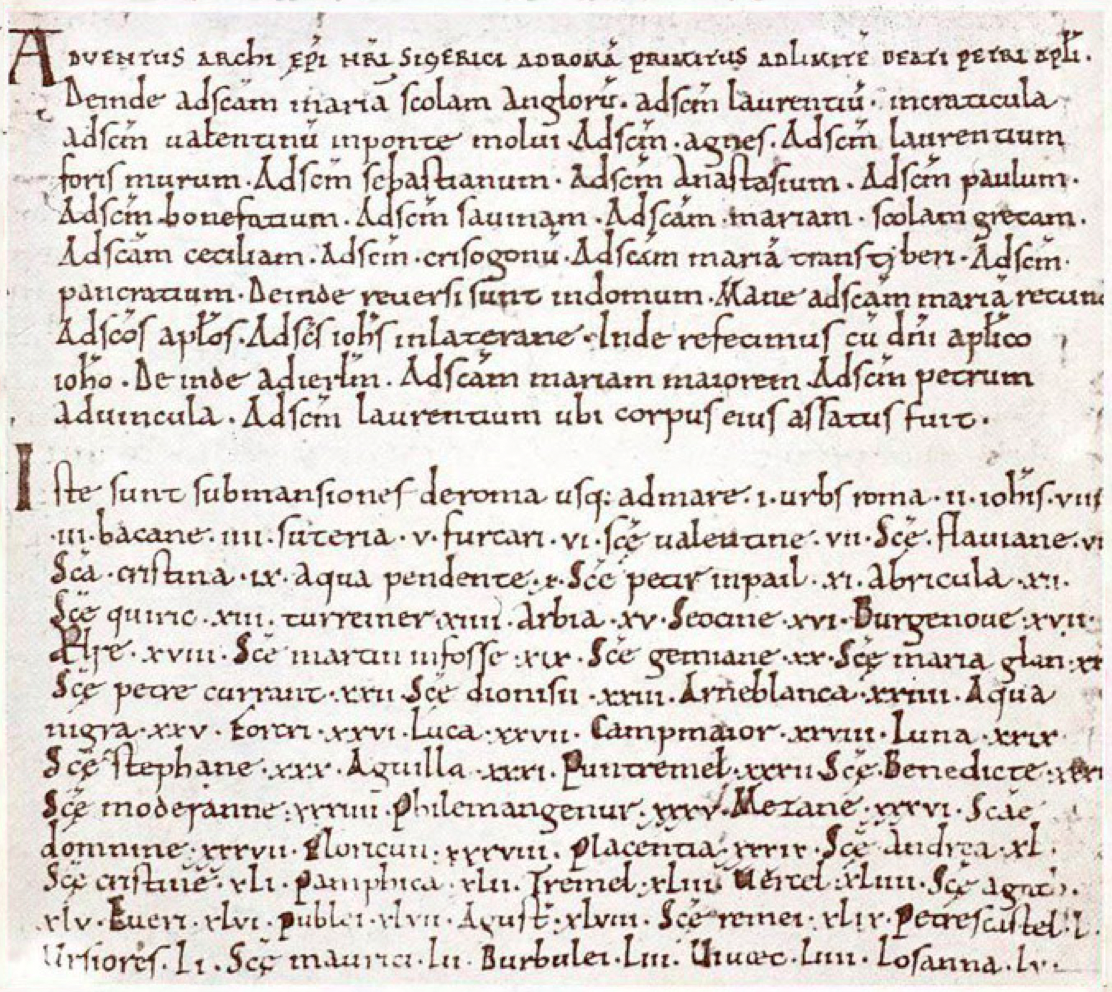 ADVENTUS ARCHI EP̄I NR̄I SIGERICI ADROMĀ PRIMITUS ADLIMITĒ BEATI PETRI APL̄I.
Deinde adsc̄am mariā scolam angloru̅. adsc̄m laurentiū. incraticula
adsc̄m ualentinū inponte molui. Adsc̄m. agnes. Adsc̄m laurentium
foris murum. Adsc̄m sebastianum. Adsc̄m anastasium. Adsc̄m paulum.
Adsc̄m bonefatium. Adsc̄m sauinam. Adsc̄am mariam. scolam grecam.
Adsc̄am ceciliam. Adsc̄m. crisogonū. Adsc̄am mariā transtyberi. Adsc̄m.
pancratium. Deinde reuersi sunt indomum. Mane adsc̄am mariā
Adsc̄os apl̄os. Adsc̄s ioh̄s inlaterane. Inde refecimus cū dn̄i apl̄ico
ioh̄o. Deinde adierl̄m. Adsc̄am mariam maiorem. Adsc̄m petrum
aduincula. Adsc̄m laurentium ubi corpus eius assatus fuit.
Iste sunt submansiones deroma usq: admare. i. urbs roma. ii. ioh̄is. viiii
.iii. bacane. iiii. suteria. v. furcari. vi. sc̄e ualentine. vii. Sc̄e. flauiane. vi
Sc̄a. cristina. ix. aqua pendente. x. Sc̄e petir inpail. xi. abricula. xii.
Sc̄e quiric. xiii. turreiner. xiiii. arbia. xv. Seocine. xvi. Burgenoue. xvii.
Ælse. xviii. Sc̄e martin infosse. xix. Sc̄e gemiane. xx. Sc̄e maria glan. xx
Sc̄e petre currant. xxii. Sc̄e dionisii. xxiii. Arneblanca. xxiiii. Aqua
nigra. xxv. forcri. xxvi. Luca. xxvii. Campmaior. xxviii. Luna. xxix.
Sc̄e stephane. xxx. Aguilla. xxxi. Puntremel. xxxii. Sc̄e. Benedicte.
Sc̄e moderanne. xxxiiii. Philemangenur. xxxv. Metane. xxxvi. Scāe
domnine. xxxvii. floricun. xxxviii. placentia. xxxix. Sc̄e andrea. xl.
Sc̄e cristine. xli. pamphica. xlii. Tremel. xliii. Uercel. xliiii. Sc̄e
.xlv. Eueri. xlvi. publei. xlvii. Agust. xlviii. Sc̄e remei. xlix. petrescastel. l.
Ursiores. li. Sc̄e maurici. lii. Burbulei. liii. Uiuæc. liiii. Losanna. lv.